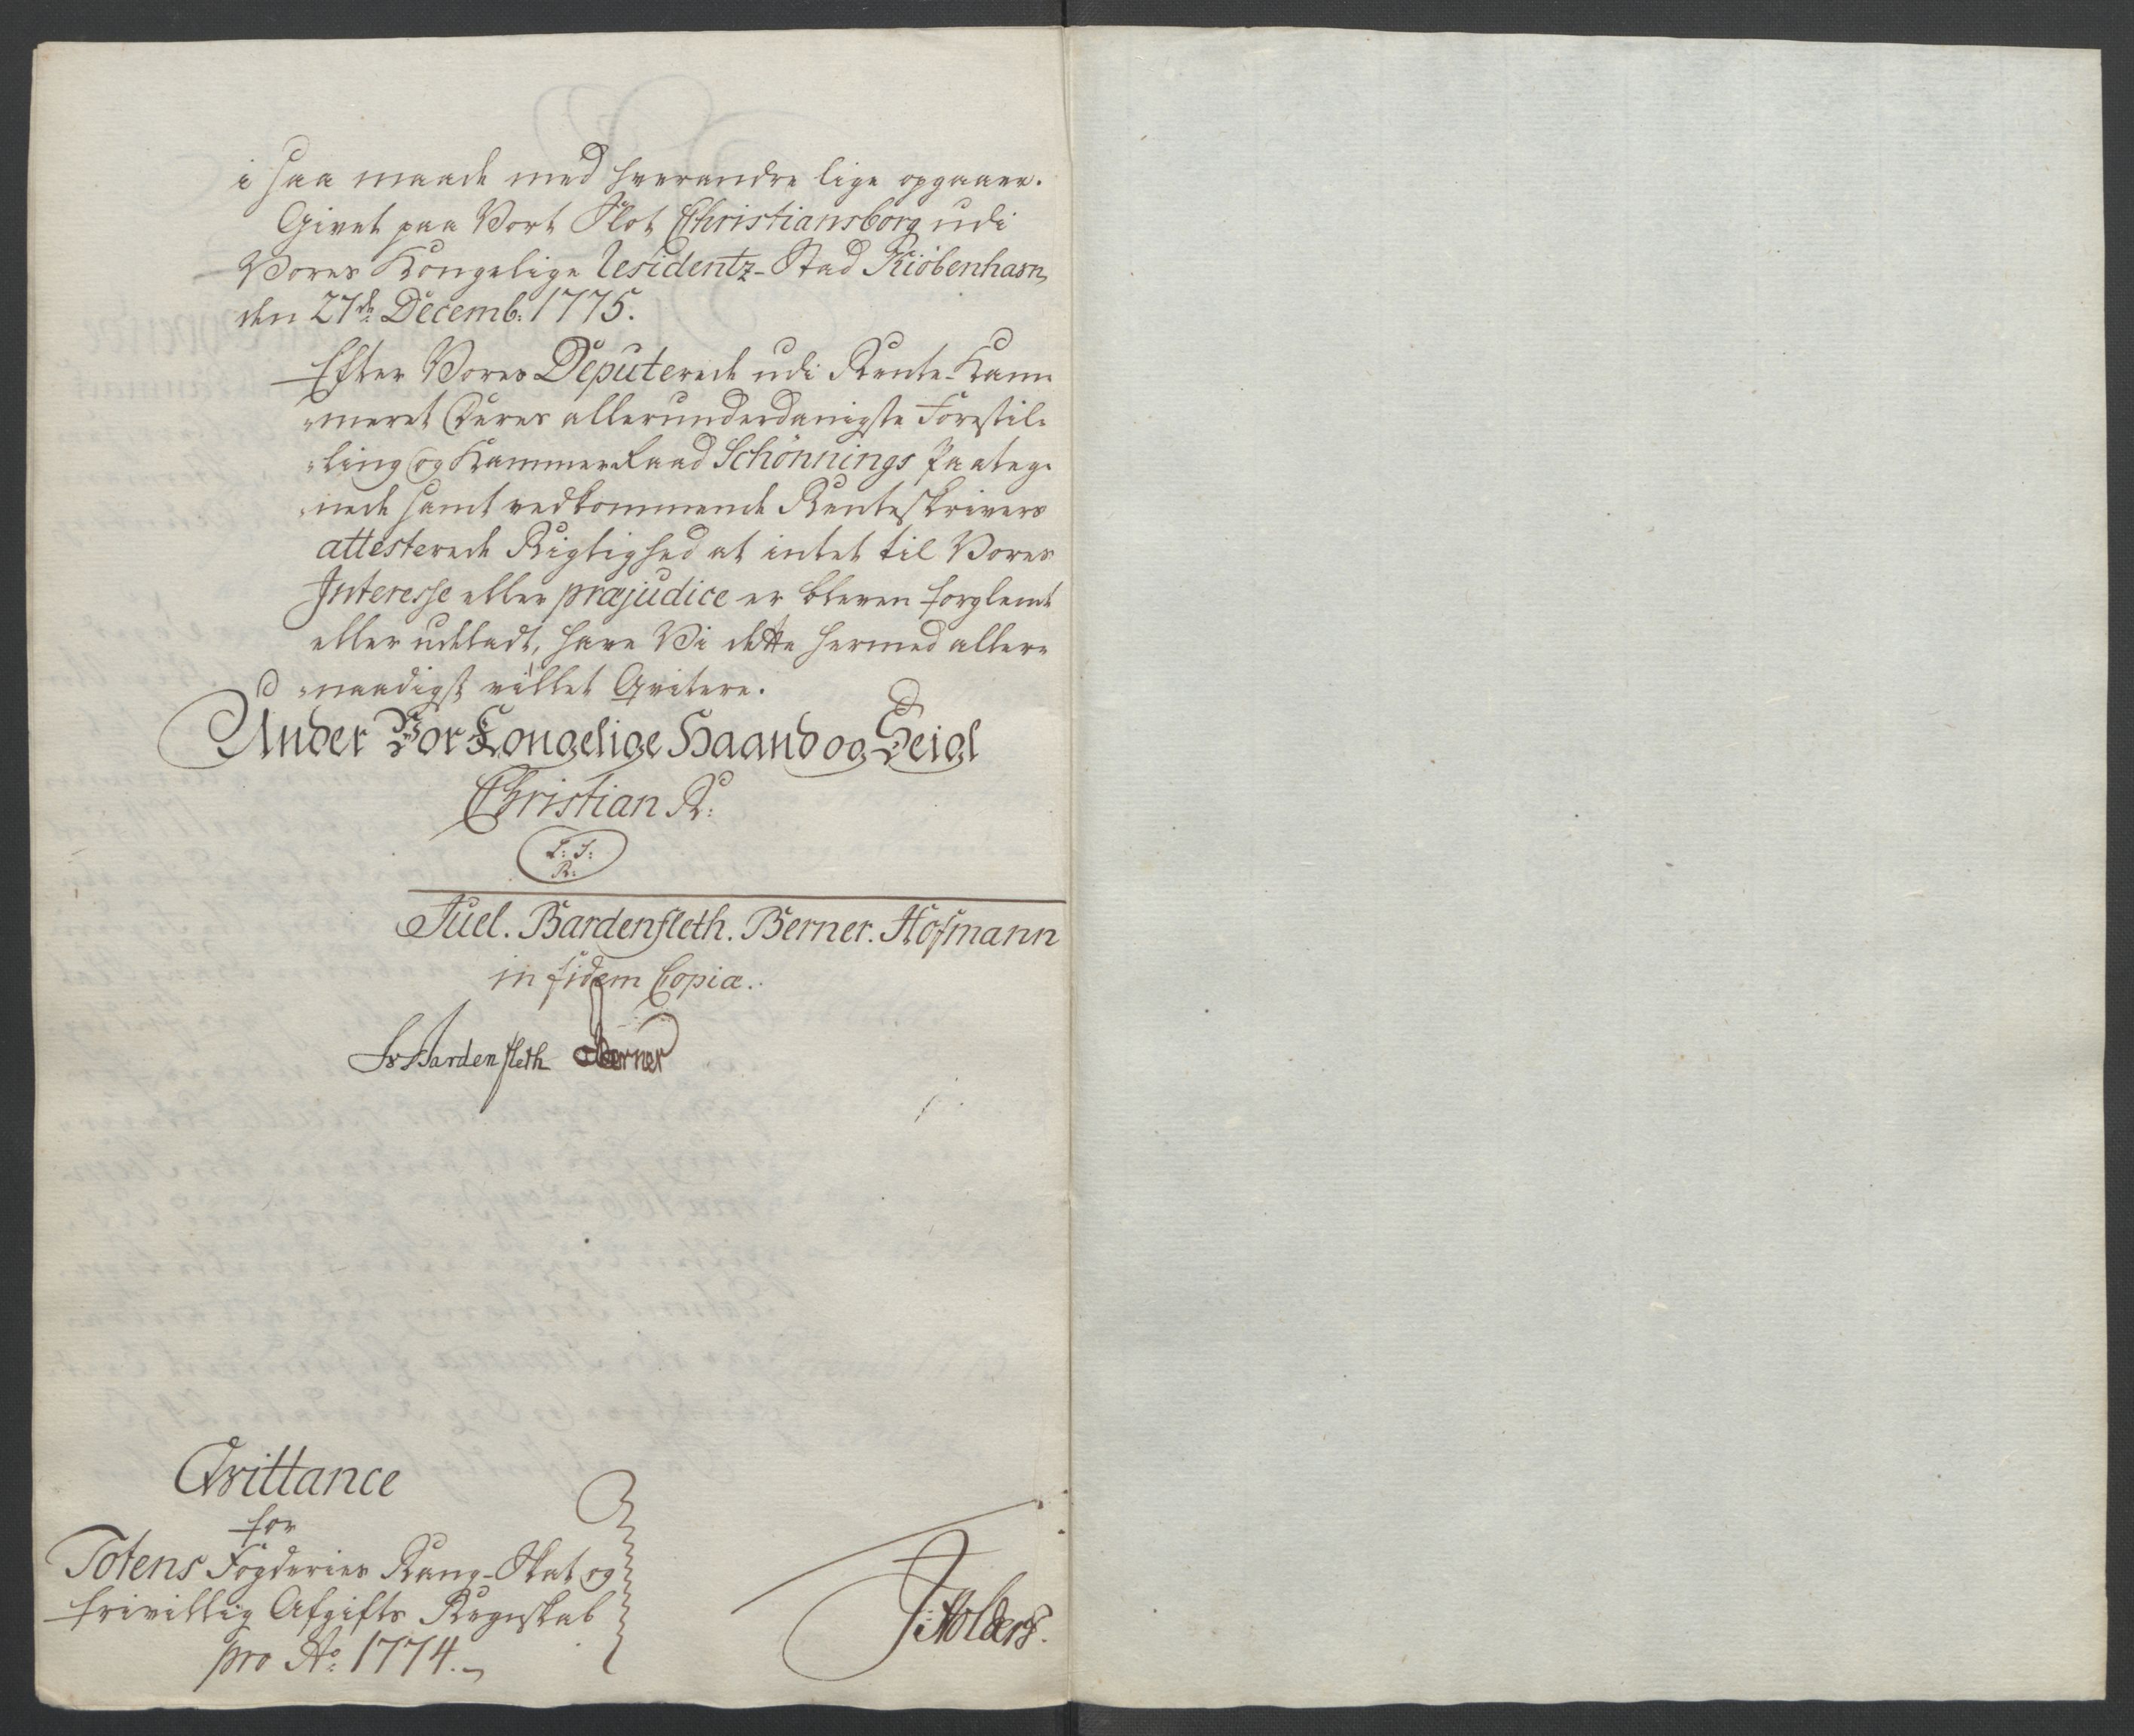 i saa maade med hverandre lige opgaaer.
Givet paa Vort Slot Christiansborg udi
Vores Kongelige Residentz-Stad Kiöbenhavn
den 27de Decemb: 1775.
Efter Vores Deputerede udi Rente-Kam-
meret Deres allerunderdanigste Forestil-
ling og KammerRaad Schönnings Paateg-
nede samt vedkommende Renteskrivers
attesterede Rigtighed at intet til Vores
Interesse eller præjudice er bleven forglemt
eller udeladt, have Vi dette hermed aller-
naadigst villet Qvitere.
Under Vor Kongelige Haand og Seigl
Christian R:
L: S:
R:
Juel. Bardenfleth. Berner. Hofmann
in fidem Copiæ.
Bardenfleth Berner
Qvittance
for
Totens Fogderies Rang-Skat og
frivillig Afgifts Regnskab
pro Ao: 1774.